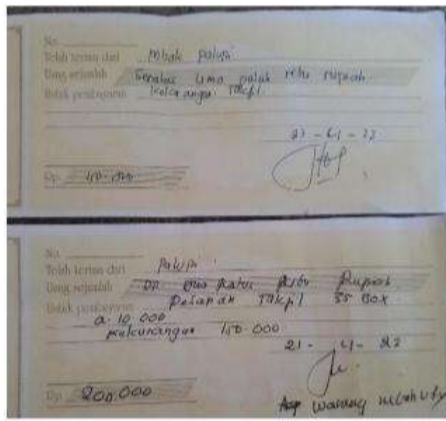 No.
Telah terima dari mbak palupi
Uang sejumlah Seratus lima puluh ribu rupiah
Untuk pembayaran kekurangan takjil
Rp.
No.
Telah terima dari Palupi
Uang sejumlah DP dua Ratus Ribu Rupiah
Untuk pembayaran takjil 35 Box
a. 10.000
kekurangan 150.000
21 - 4 - 22
Rp. 200.000
warung mbah uty